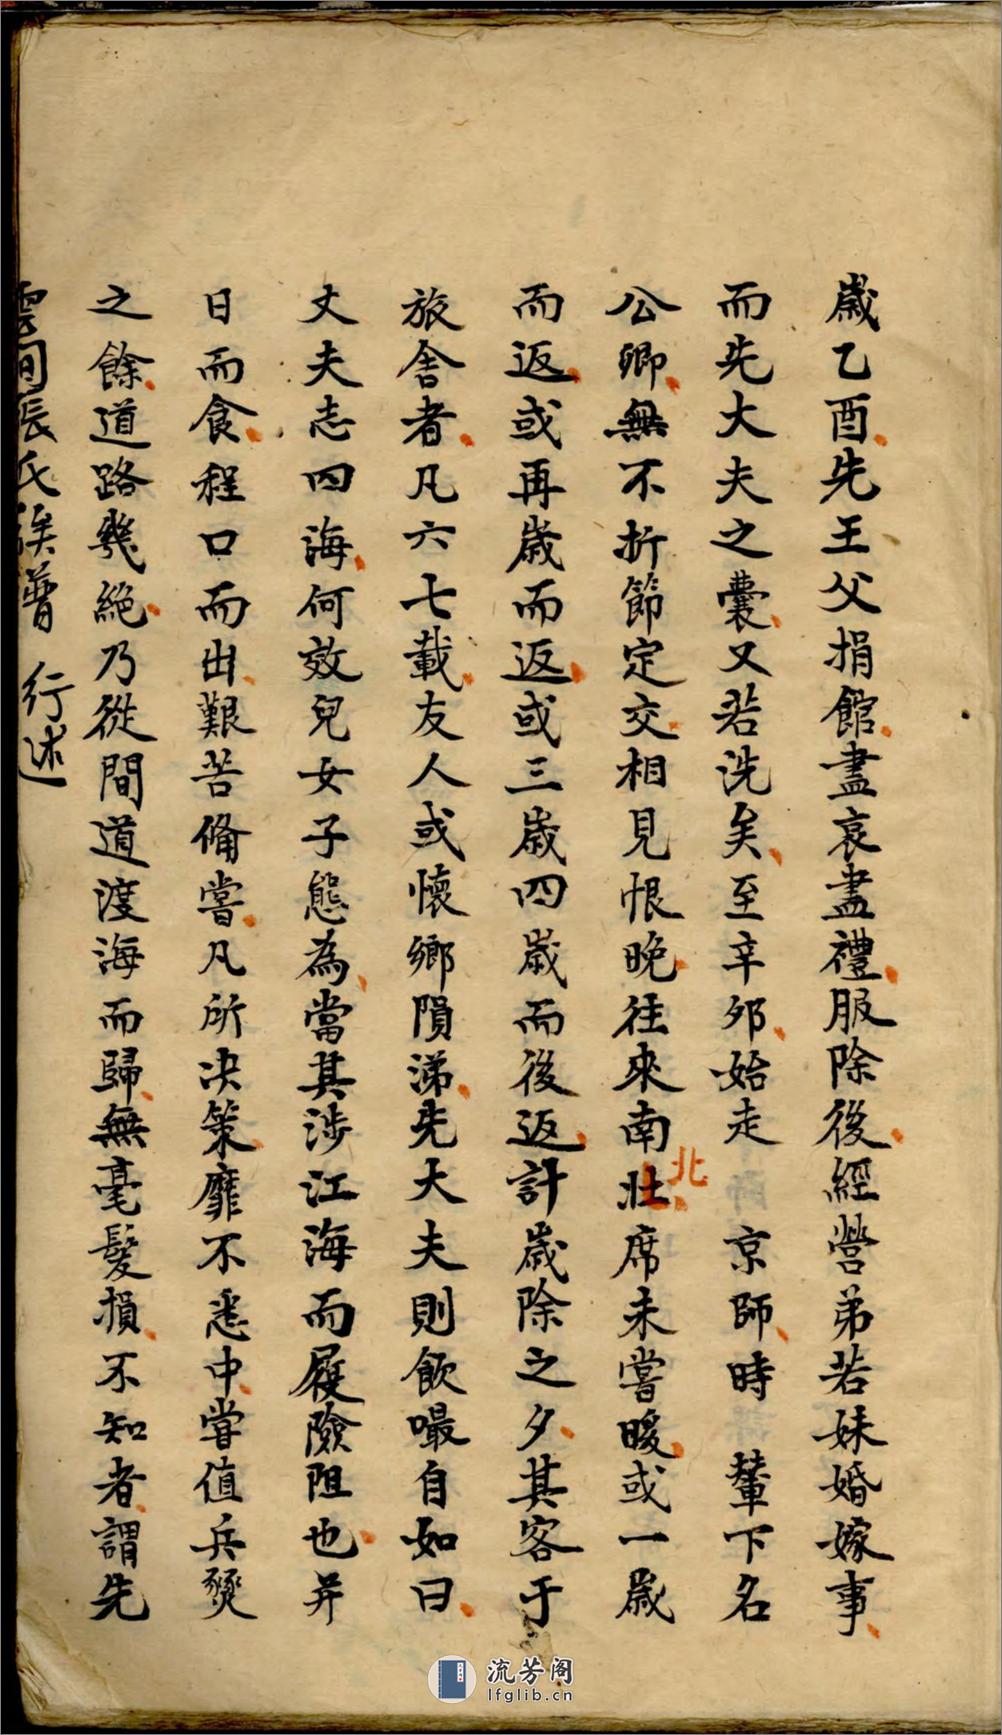 歲乙酉先王父捐館盡哀盡禮服除後經營弟若妹婚嫁事
而先大夫之囊又若洗矣至辛夘始走 京師時 輦下名
公卿無不折節定交相見恨晚往來南壯席未嘗暖或一歲
北
而返或再歲而返或三歲四歲而後返計歲除之夕其客于
旅舍者凡六七載友人或懷鄉隕涕先大夫則飲嘬自如曰
丈夫志四海何效兒女子態為當其涉江海而履險阻也并
日而食程口而出艱苦俻嘗凡所决策靡不悉中嘗值兵燹
之餘道路幾絶乃從間道渡海而歸無毫髮損不知者謂先
雲間張氏族譜 行述
流芳阁
lfglib.cn